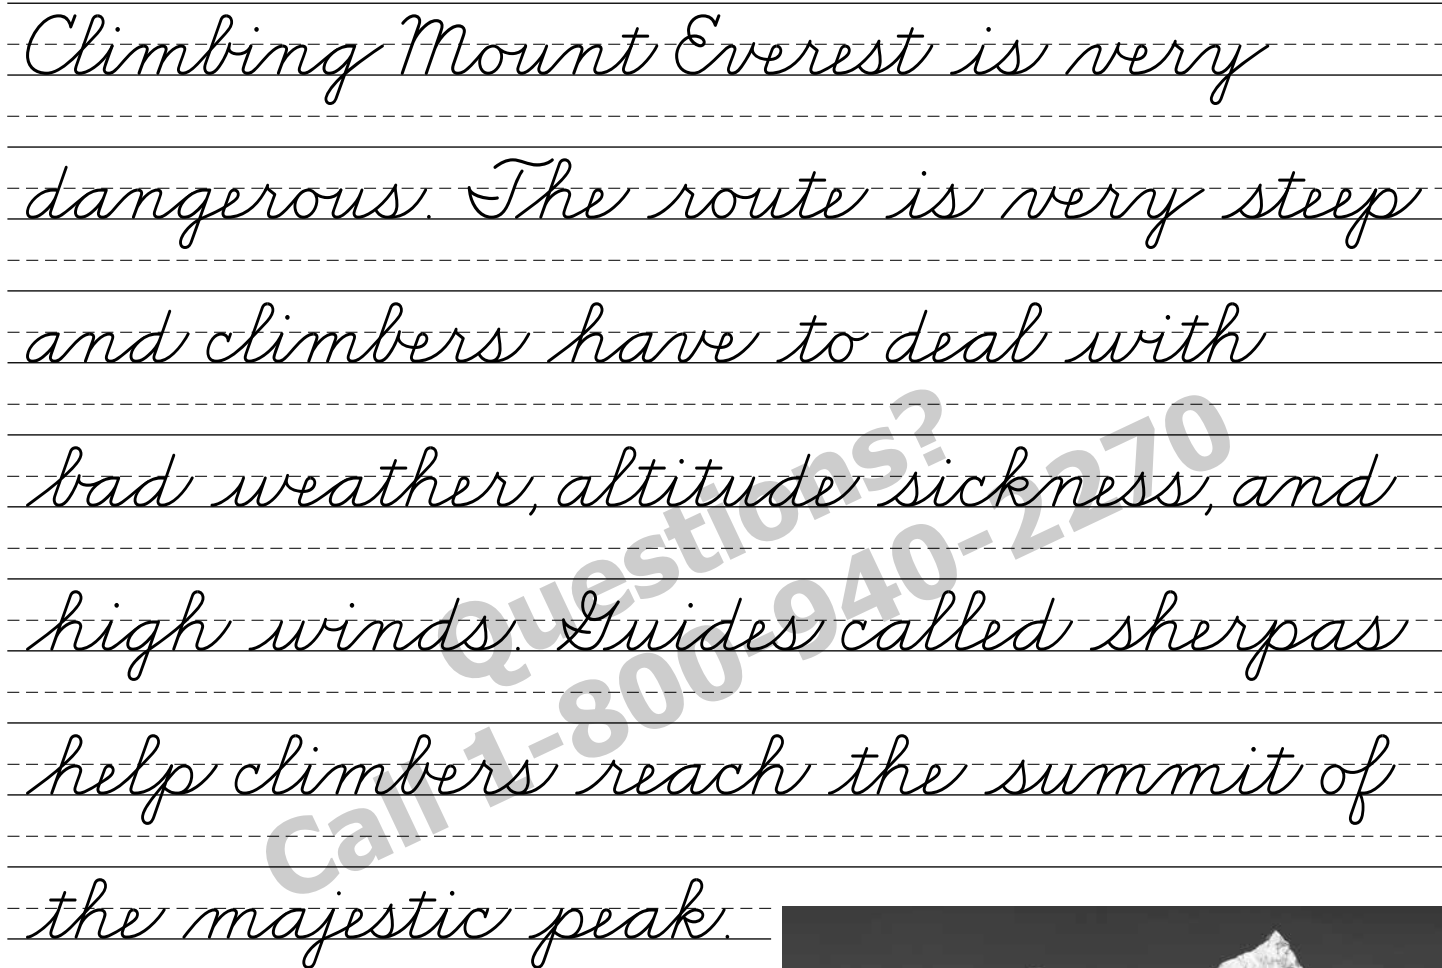 Climbing Mount Everest is very
dangerous. The route is very steep
and climbers have to deal with
bad weather, altitude sickness, and
high winds. Guides called sherpas
help climbers reach the summit of
the majestic peak.
Questions?
Call 1-800-940-2270